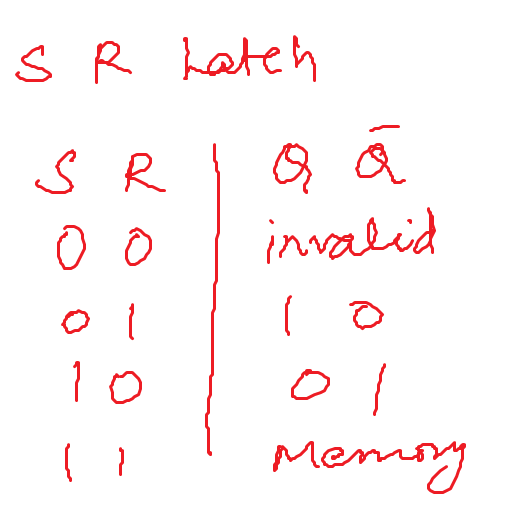 S R Latch
S R | Q Q̅
0 0 | invalid
0 1 | 1 0
1 0 | 0 1
1 1 | Memory